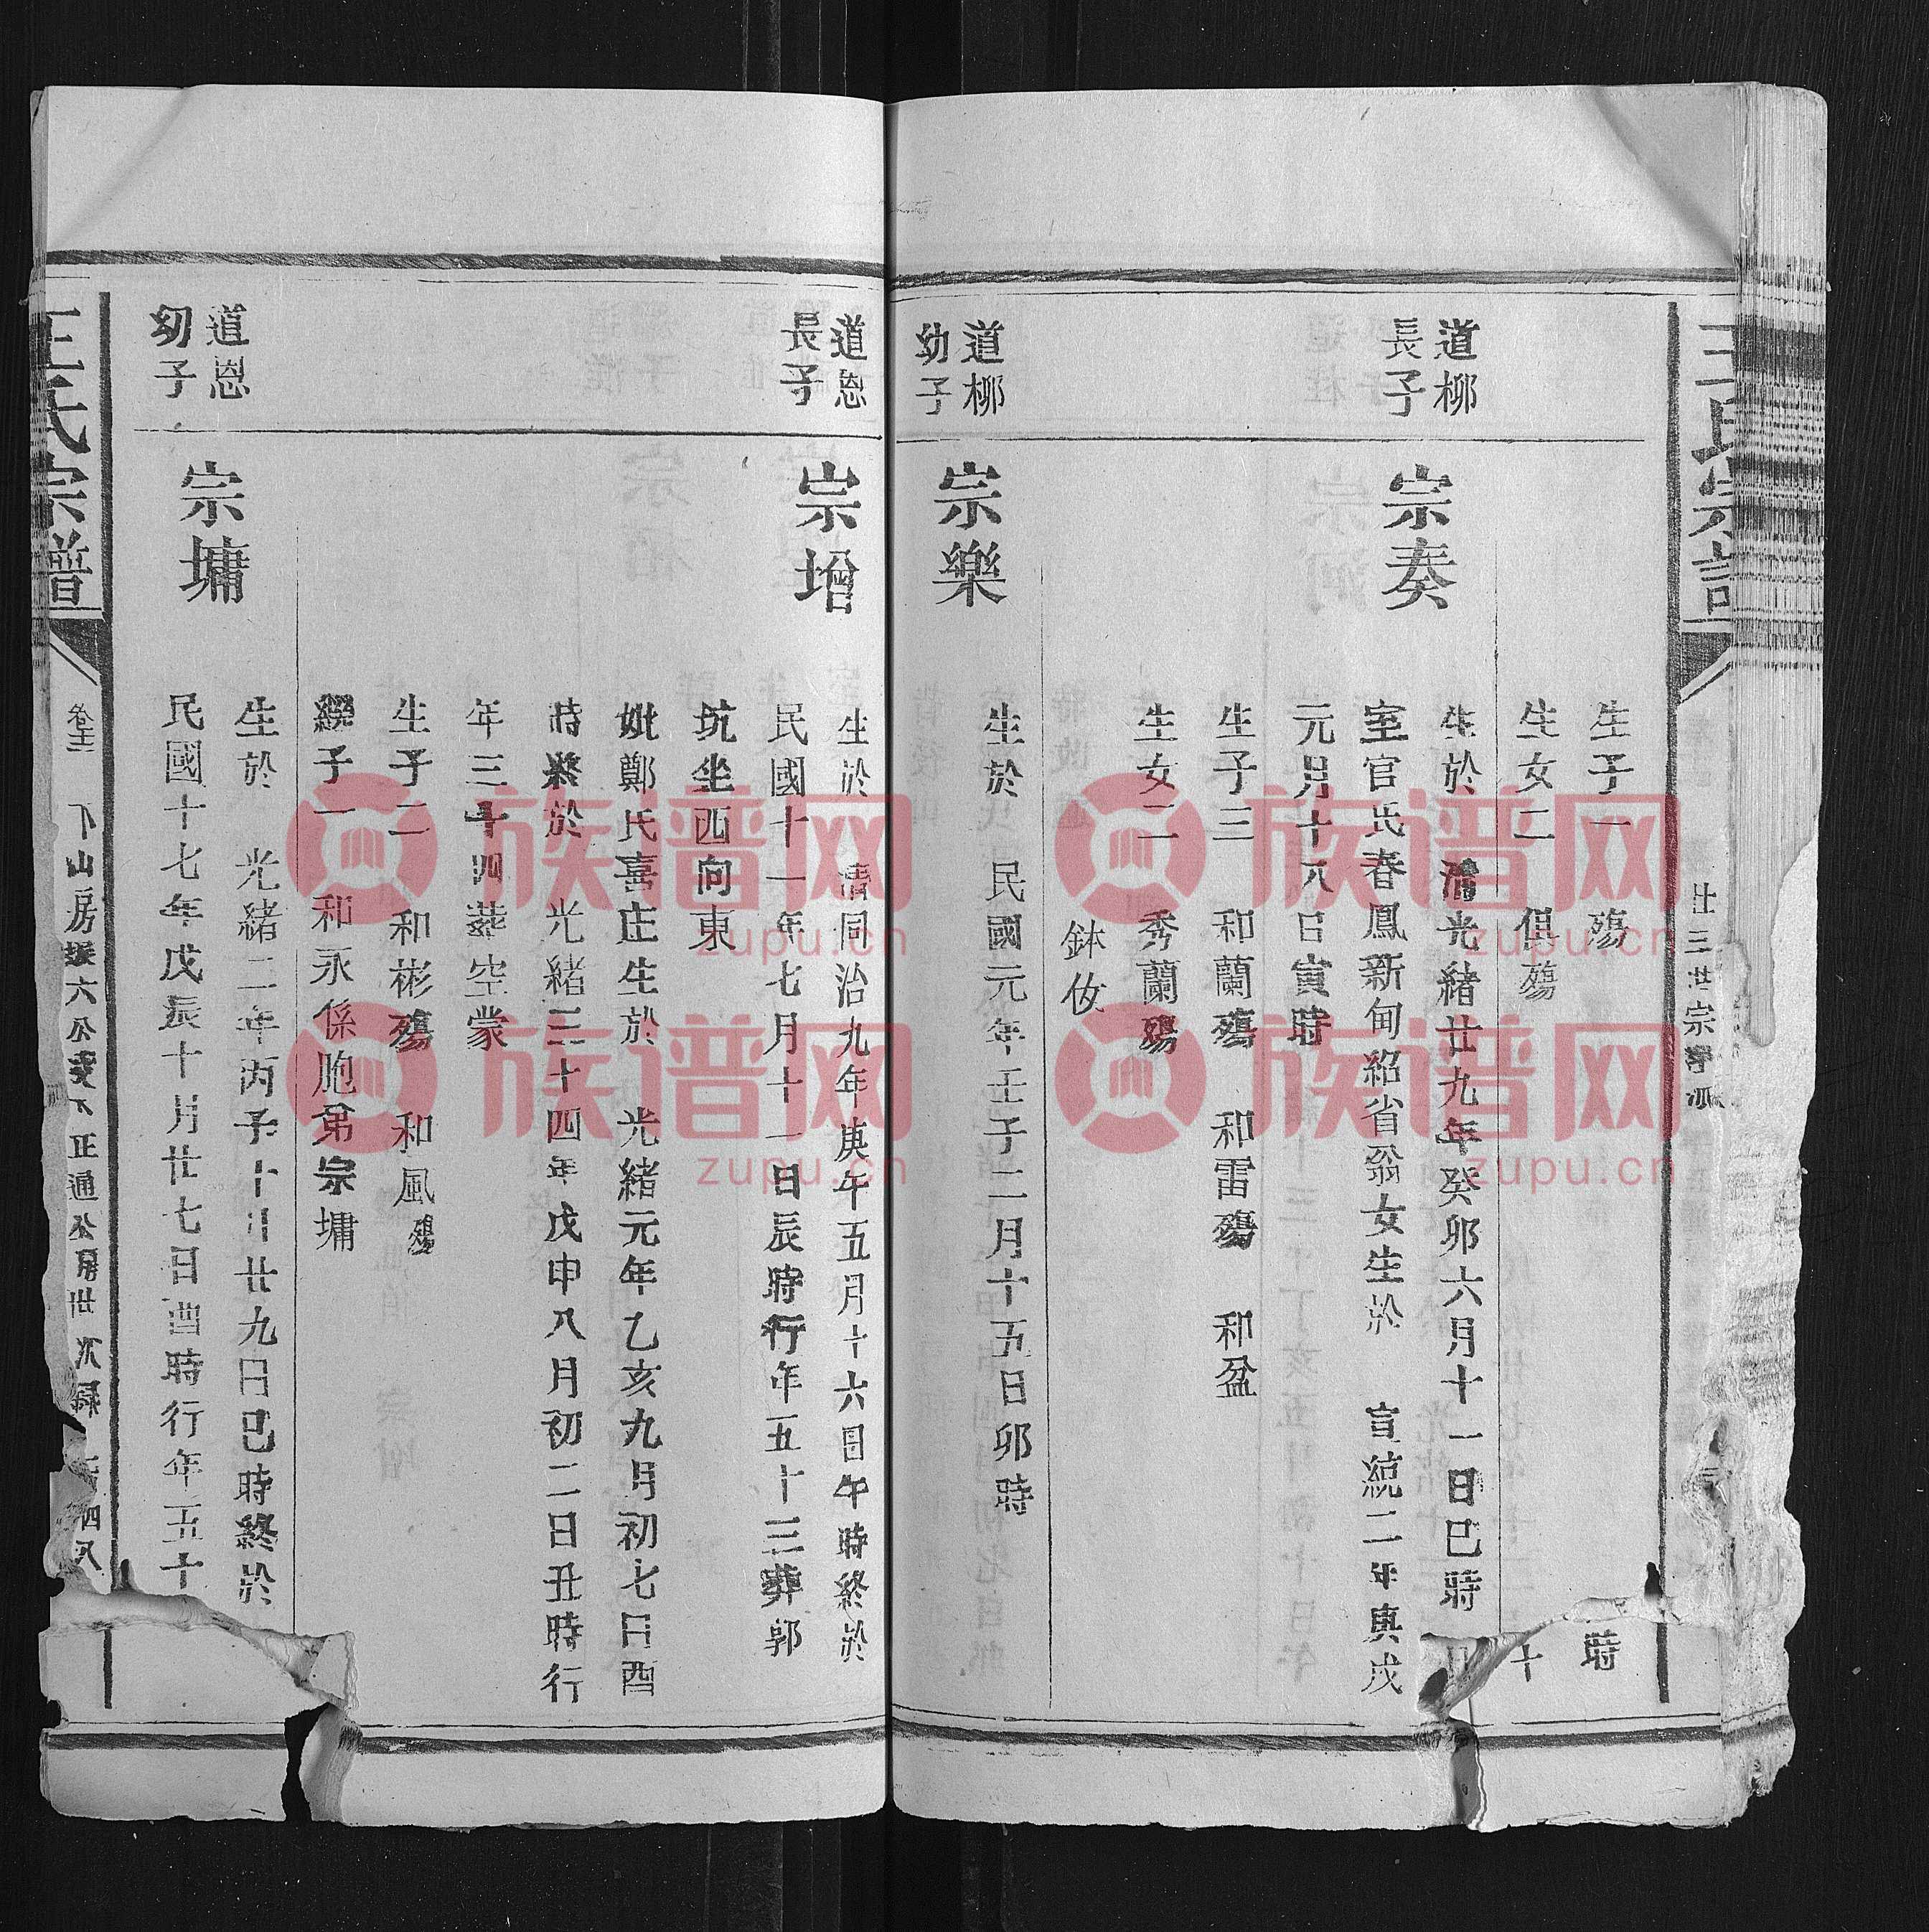 王氏宗譜
廿三世宗字派
生子一 殤
生女二 俱殤
道柳
長子
宗奏
生於 清光緒廿九年癸卯六月十一日巳時
室官氏春鳳新甸紹省翁女生於 宣統二年庚戌
元月十八日寅時
生子三 和蘭殤 和雷殤 和盆
生女二 秀蘭殤
鉢攸
道柳
幼子
宗樂
生於 民國元年壬子二月十五日卯時
道恩
長子
宗增
生於 清同治九年庚午五月十六日午時終於
民國十一年七月十一日辰時行年五十三葬郭
坑坐西向東
妣鄭氏喜庄生於 光緒元年乙亥九月初七日酉
時終於 光緒三十四年戊申八月初二日丑時行
年三十四葬空蒙
生子二 和彬殤 和風殤
繼子一 和永係胞弟宗墉
道恩
幼子
宗墉
生於 光緒二年丙子十月廿九日巳時終於
民國十七年戊辰十月廿七日酉時行年五十
王氏宗譜
下山房振六公 正通公房世次錄
族谱网
zupu.cn
族谱网
zupu.cn
族谱网
zupu.cn
族谱网
zupu.cn